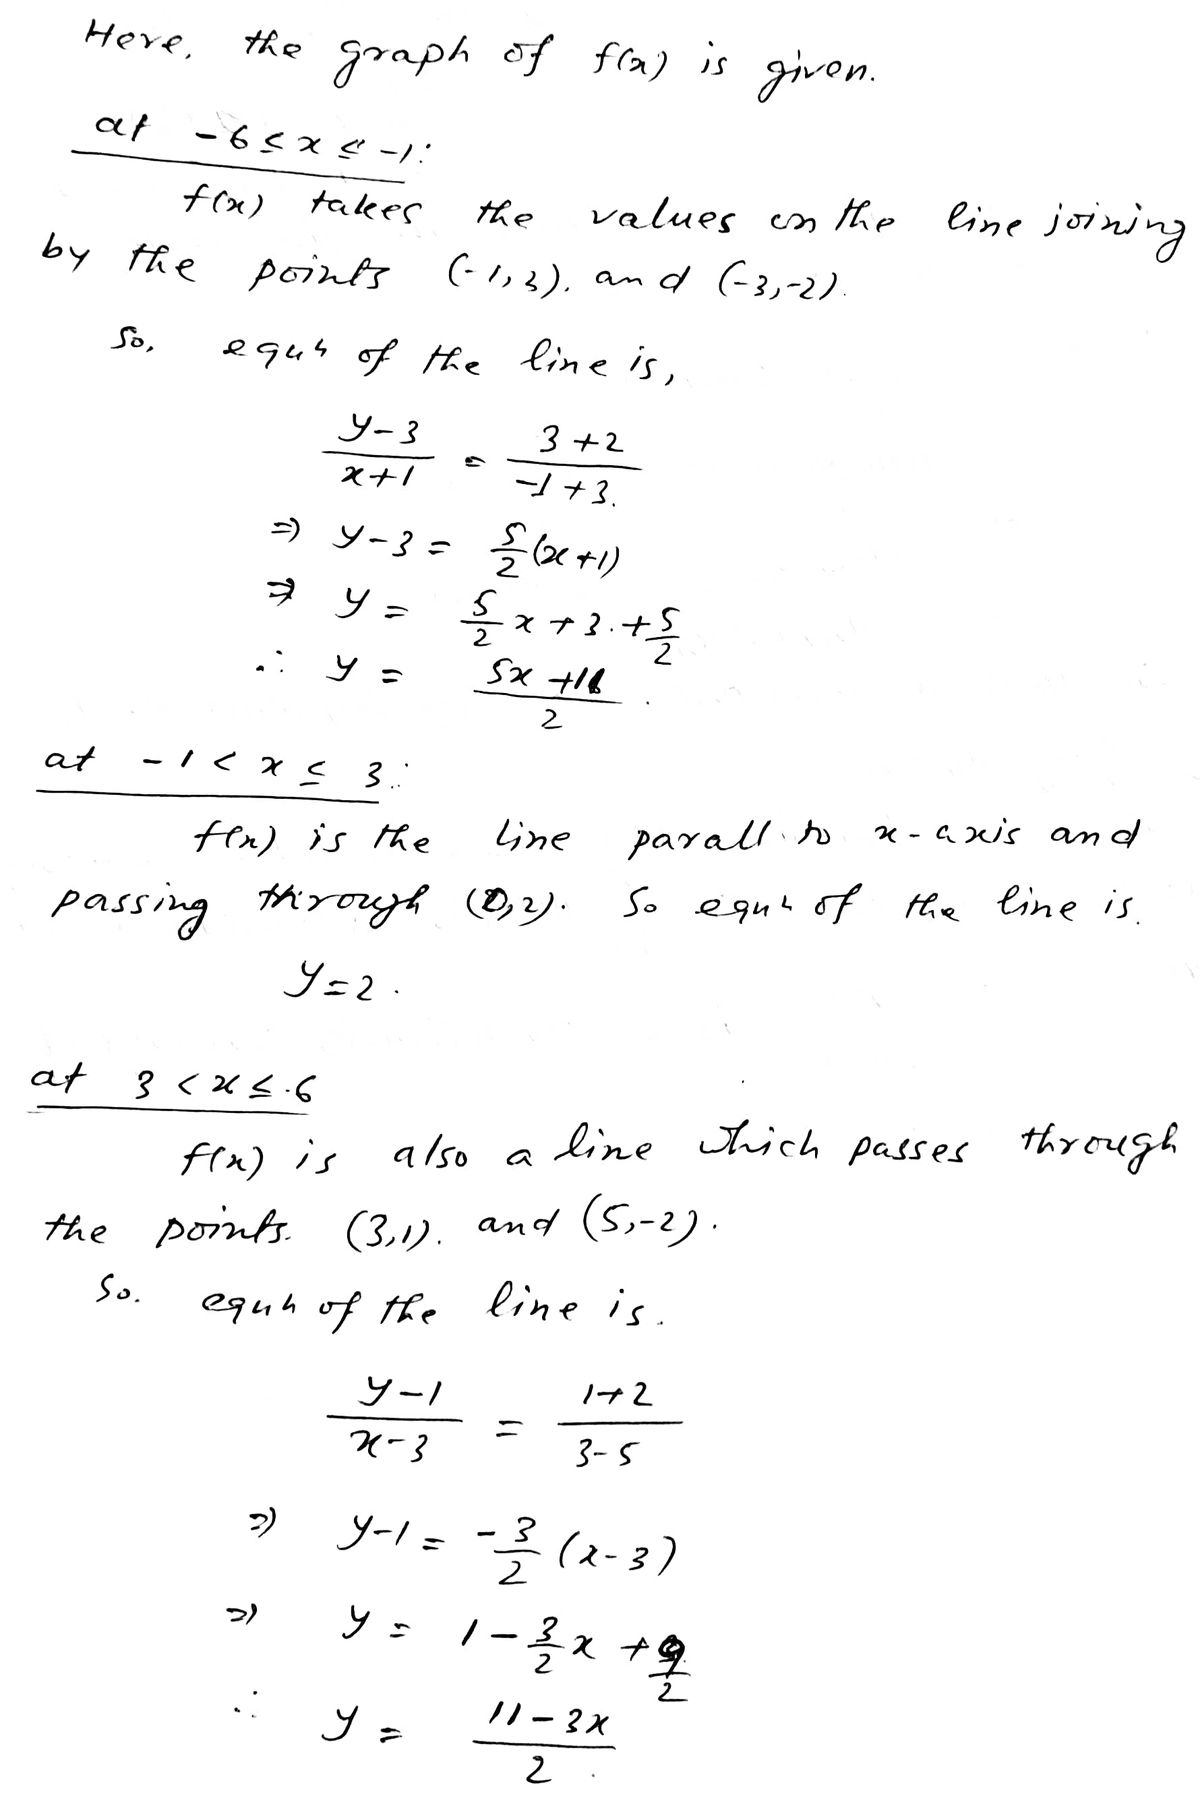 Here, the graph of f(x) is given.
at -6 ≤ x ≤ -1:
f(x) takes the values on the line joining
by the points (-1,3). and (-3,-2).
So, equn of the line is,
(y-3)/(x+1) = (3+2)/(-1+3).
⇒ y-3 = 5/2 (x+1)
⇒ y = 5/2 x + 3. + 5/2
∴ y = (5x +11)/2.
at -1 < x ≤ 3:
f(x) is the line parall to x-axis and
passing through (0,2). So equn of the line is.
y=2.
at 3 < x ≤ 6
f(x) is also a line which passes through
the points. (3,1). and (5,-2).
So. equn of the line is.
(y-1)/(x-3) = (1+2)/(3-5)
⇒ y-1 = -3/2 (x-3)
⇒ y = 1 - 3/2 x + 9/2
∴ y = (11-3x)/2.